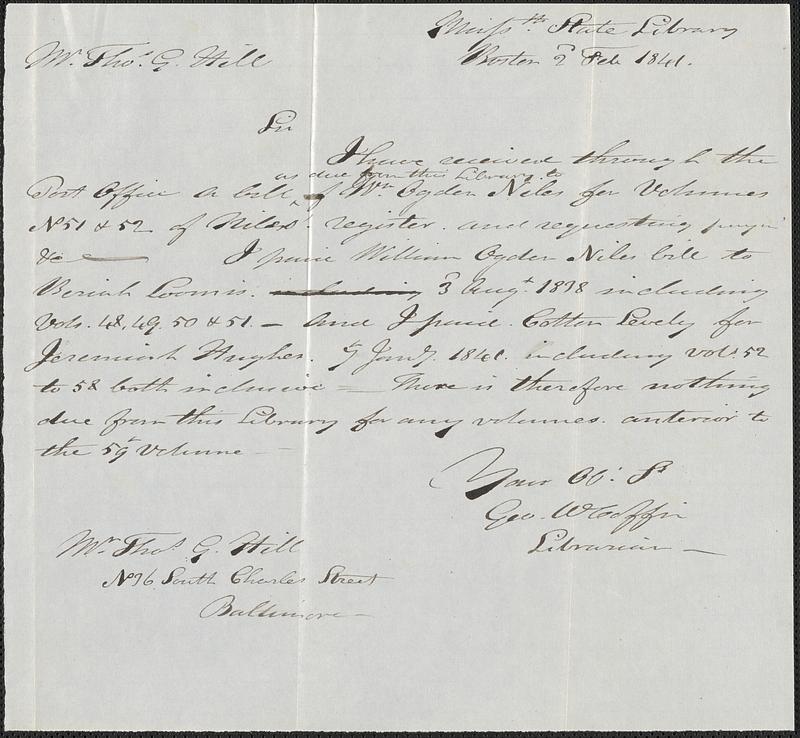 Massts. State Library
Boston 3d Feb 1841.
Mr. Thos. G. Hill
Sir
I have received through the
as due from this Library to
Post Office a bill of Wm Ogden Niles for Volumes
No 51 & 52 of Niles' register. and requesting
&c — I paid William Ogden Niles bill to
Beriah Loomis. including 3d Augt. 1838 including
Vols. 48, 49. 50 & 51. — and I paid. Cotton Levely for
Jeremiah Hughes. Jany. 1841. including vols. 52
to 58 both inclusive — There is therefore nothing
due from this Library for any volumes. anterior to
the 59 Volume —
Your Ob: St
Geo. W Coffin
Librarian —
Mr Thos G. Hill
No 6 South Charles Street
Baltimore —